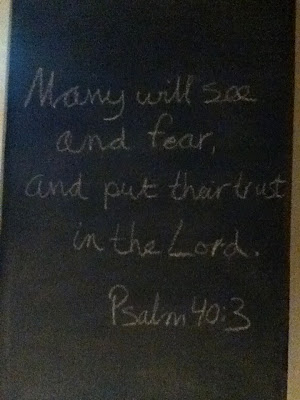 Many will see
and fear,
and put their trust
in the Lord.
Psalm 40:3